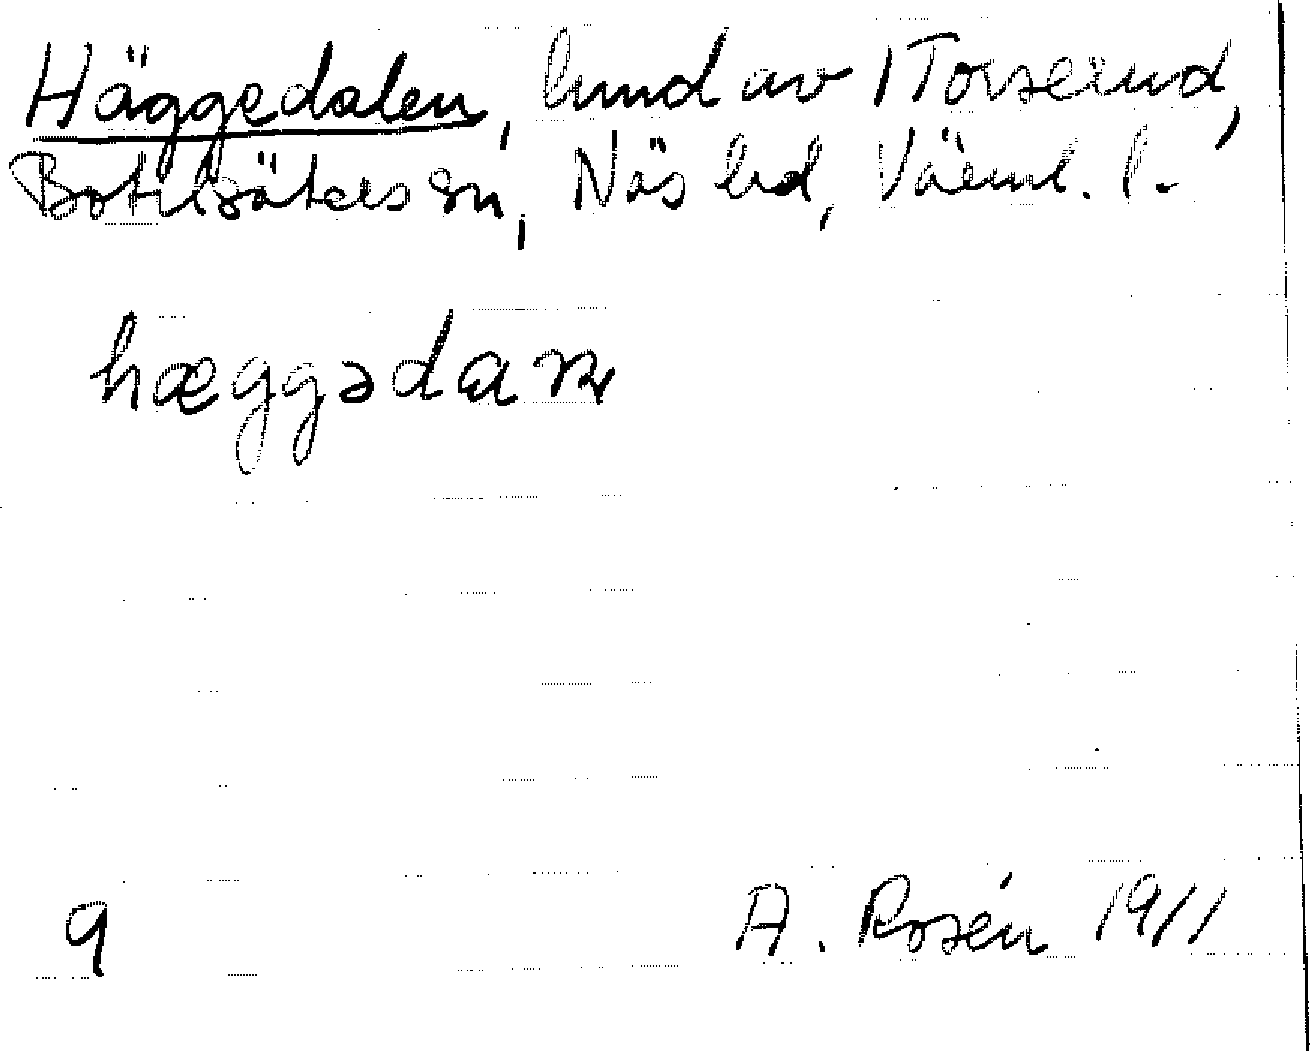 Häggedalen, lund av 1 Torserud,
Botilsäters sn, Näs hd, Värml. l.
hæggədaɳ
9
A. Rosén 1911